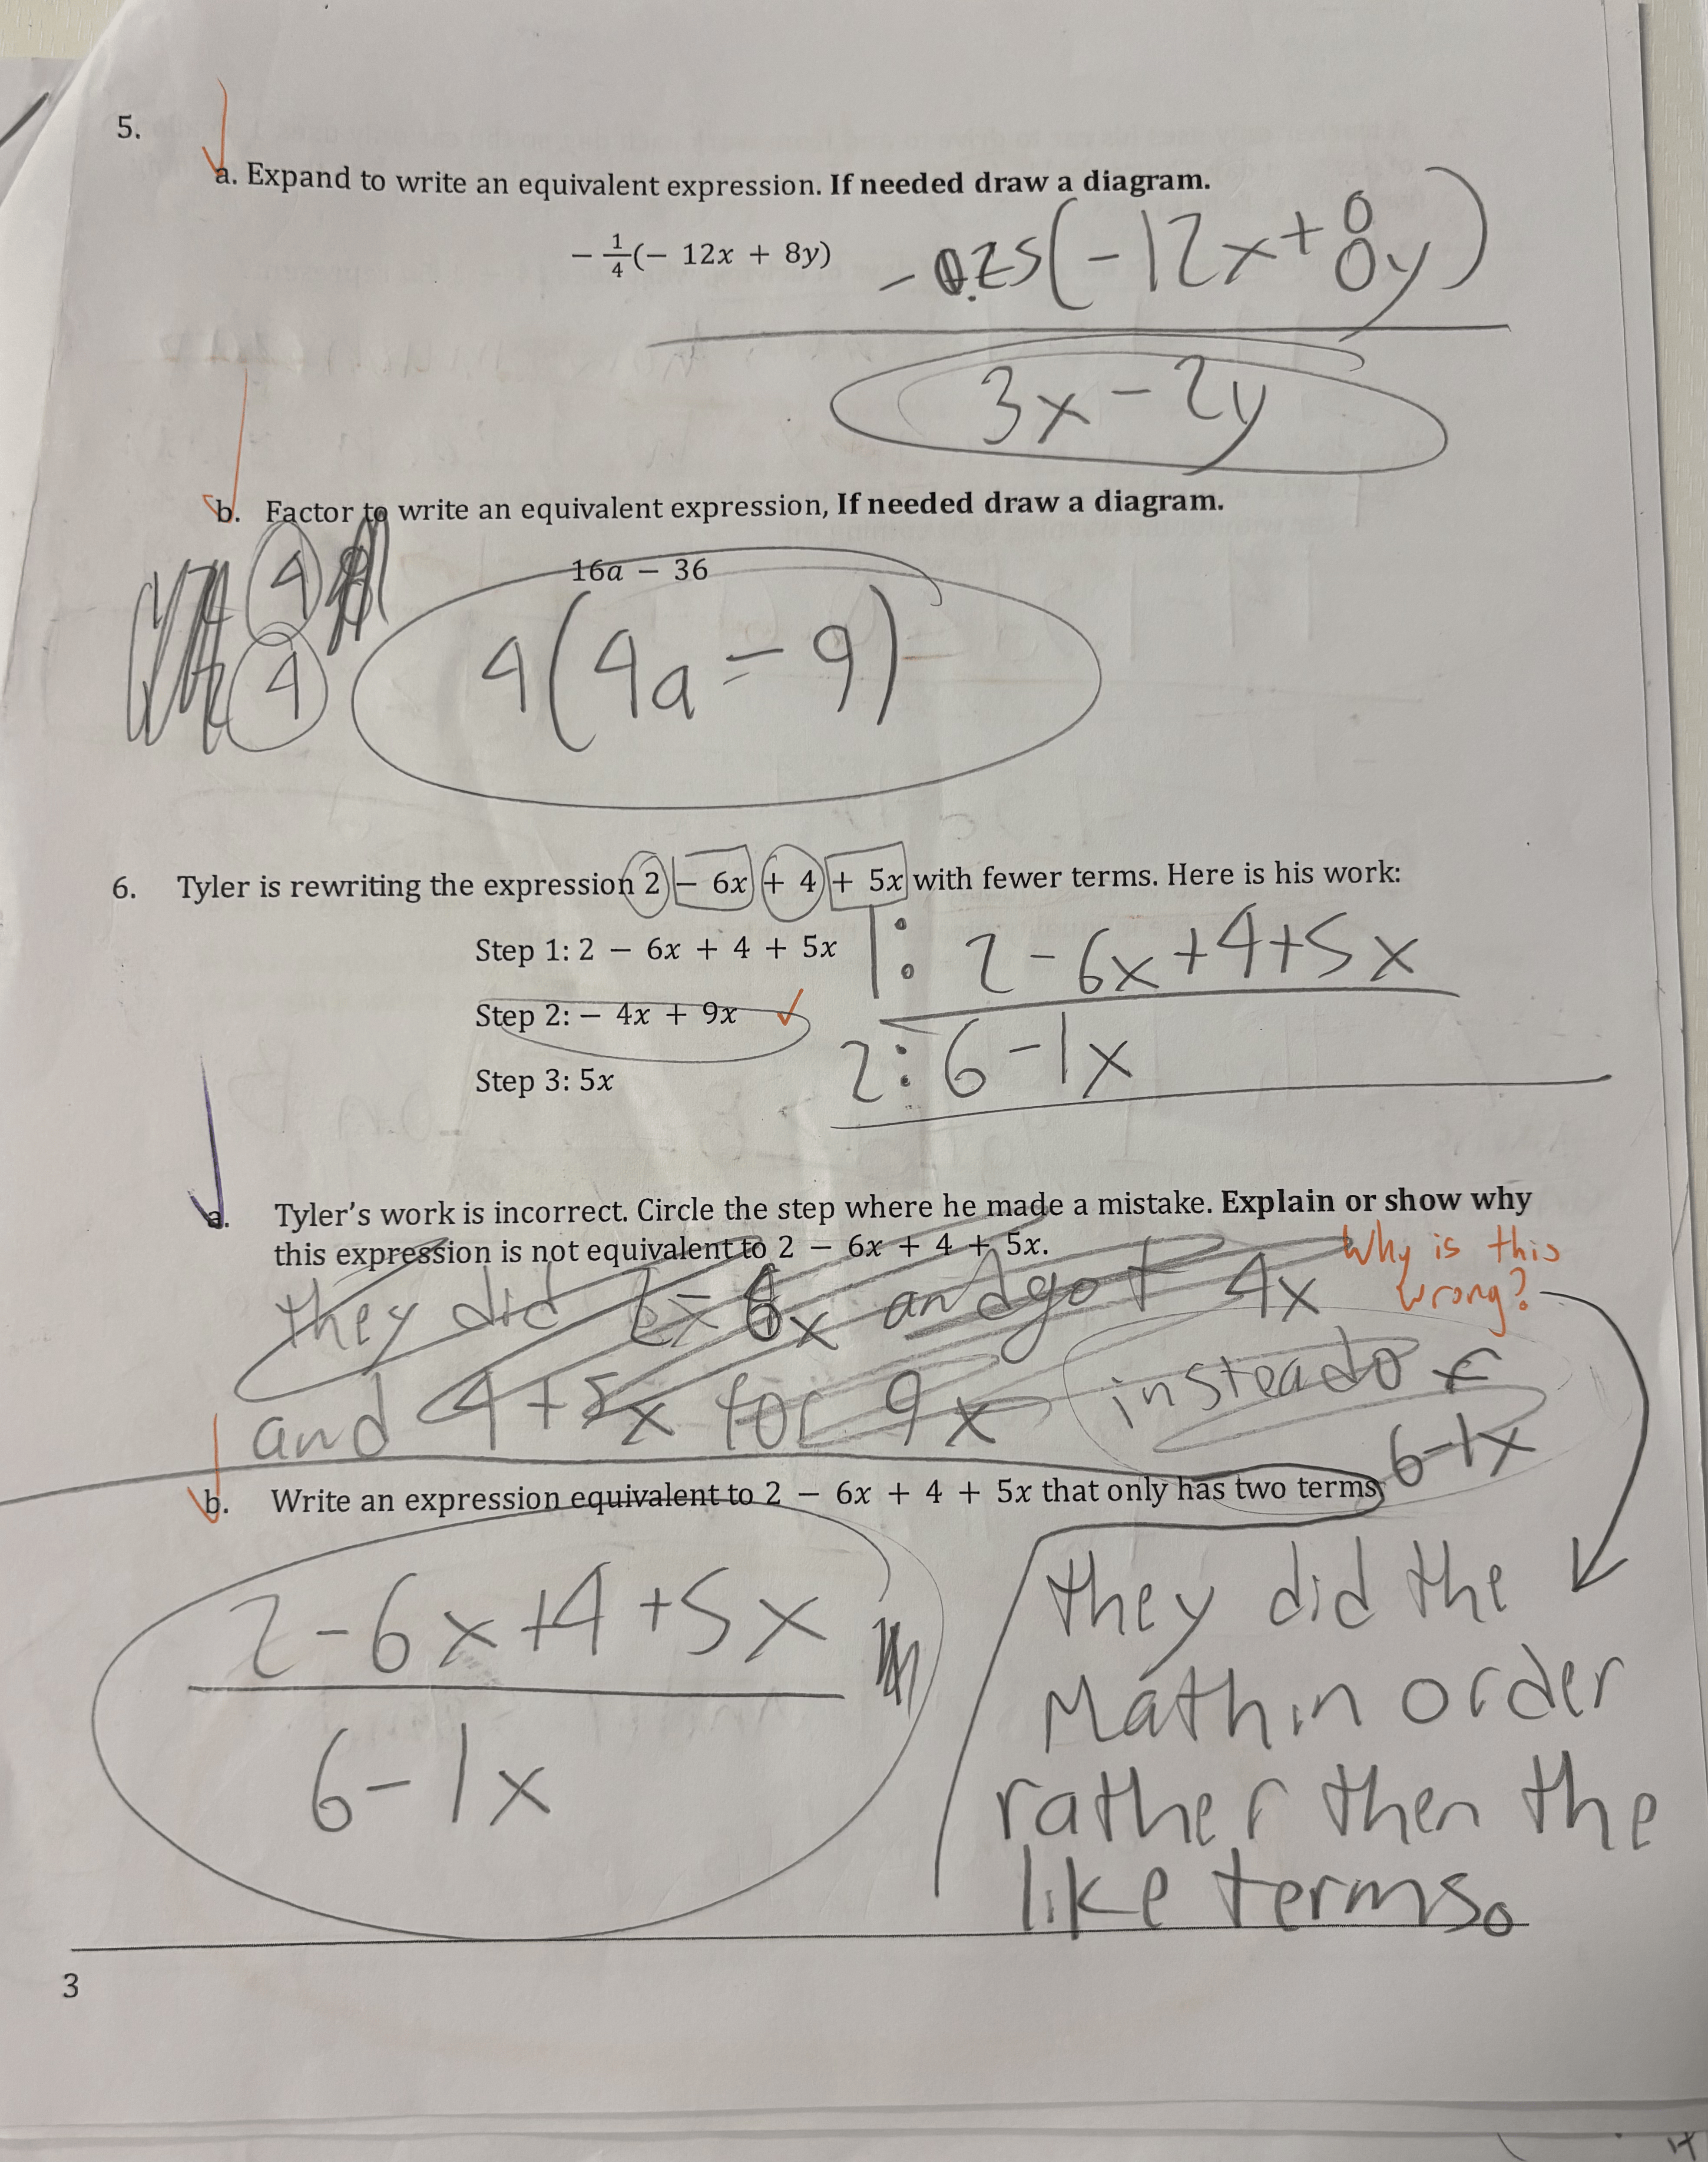 5.
a. Expand to write an equivalent expression. If needed draw a diagram.
− 1/4 (− 12x + 8y)
-0.25(-12x+8y)
3x-2y
b. Factor to write an equivalent expression, If needed draw a diagram.
4
16a − 36
4
4(4a-9)
6. Tyler is rewriting the expression 2 − 6x + 4 + 5x with fewer terms. Here is his work:
Step 1: 2 − 6x + 4 + 5x
1: 2-6x+4+5x
Step 2: − 4x + 9x ✓
2: 6-1x
Step 3: 5x
a. Tyler's work is incorrect. Circle the step where he made a mistake. Explain or show why
this expression is not equivalent to 2 − 6x + 4 + 5x.
Why is this
wrong?
they did 2-6x and got 4x
and 4+5x for 9x instead of
6-1x
b. Write an expression equivalent to 2 − 6x + 4 + 5x that only has two terms
2-6x+4+5x
6-1x
they did the
Math in order
rather then the
like terms.
3